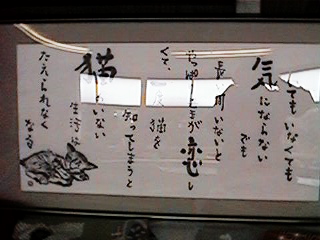 いてもいなくても
気にならない
でも
長い間いないと
やっぱり
が恋し
くて
猫を
知ってしまうと
猫のいない
生活は
たえられなく
なる